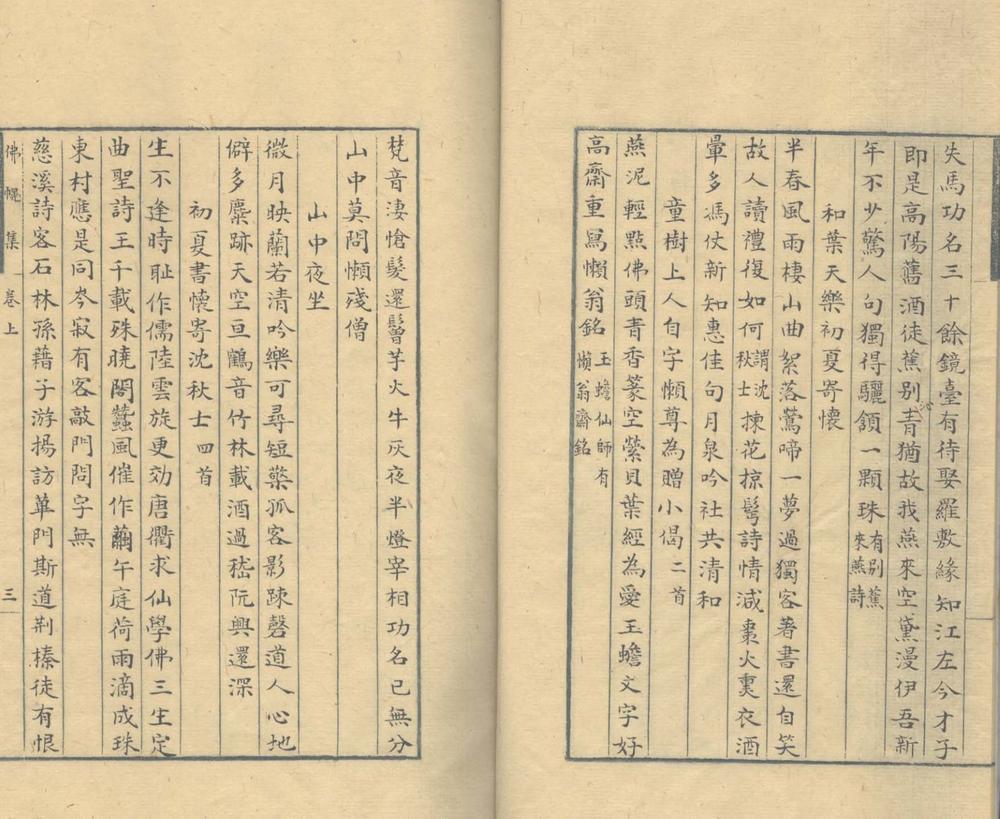 失馬功名三十餘鏡臺有待娶羅敷緣知江左今才子
即是高陽舊酒徒蕉别青猶故我燕來空黛漫伊吾新
年不少驚人句獨得驪頷一顆珠有别蕉來燕詩
和葉天樂初夏寄懷
半春風雨棲山曲絮落鶯啼一夢過獨客著書還自笑
故人讀禮復如何謂沈秋士揀花掠鬢詩情減棗火熏衣酒
暈多馮仗新知惠佳句月泉吟社共清和
童樹上人自字懶尊為贈小偈二首
燕泥輕點佛頭青香篆空縈貝葉經為愛玉蟾文字好
高齋重寫懶翁銘玉蟾仙師有懶翁齋銘
梵音淒愴髮還鬙芋火牛灰夜半燈宰相功名已無分
山中莫問懶殘僧
山中夜坐
微月映蘭若清吟樂可尋短檠孤客影疎磬道人心地
僻多麋跡天空亘鶴音竹林載酒過嵇阮興還深
初夏書懷寄沈秋士四首
生不逢時恥作儒陸雲旋更効唐衢求仙學佛三生定
曲聖詩王千載殊曉閣蠶風催作繭午庭荷雨滴成珠
東村應是同岑寂有客敲門問字無
慈溪詩客石林孫藉子游揚訪蓽門斯道荆榛徒有恨
佛幌集 卷上 三